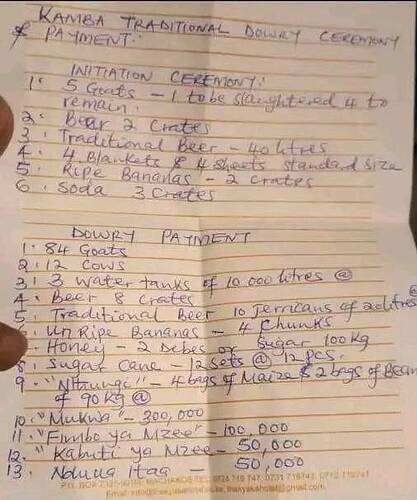 KAMBA TRADITIONAL DOWRY CEREMONY
& PAYMENT:
INITIATION CEREMONY:
1. 5 Goats - 1 to be slaughtered 4 to
remain.
2. Beer 2 Crates
3. Traditional Beer - 40 litres
4. 4 Blankets & 4 sheets standard size
5. Ripe Bananas - 2 crates
6. Soda 3 Crates
DOWRY PAYMENT
1. 84 Goats
2. 12 Cows
3. 3 Water tanks of 10 000 litres @
4. Beer 8 Crates
5. Traditional Beer 10 Jerricans of 20 litres @
6. Un Ripe Bananas - 4 Chunks
7. Honey - 2 Debes or Sugar 100 kg
8. Sugar Cane - 12 Sets @ 12 pcs.
9. "Nthungi" - 4 bags of Maize & 2 bags of Bean
of 90 kg @
10. "Mukwa" - 300,000
11. "Fimbo ya Mzee" - 100,000
12. "Kabuti ya Mzee - 50,000
13. Nduua Itaa 50,000
P.O. BOX MACHAKOS TEL:
Email: